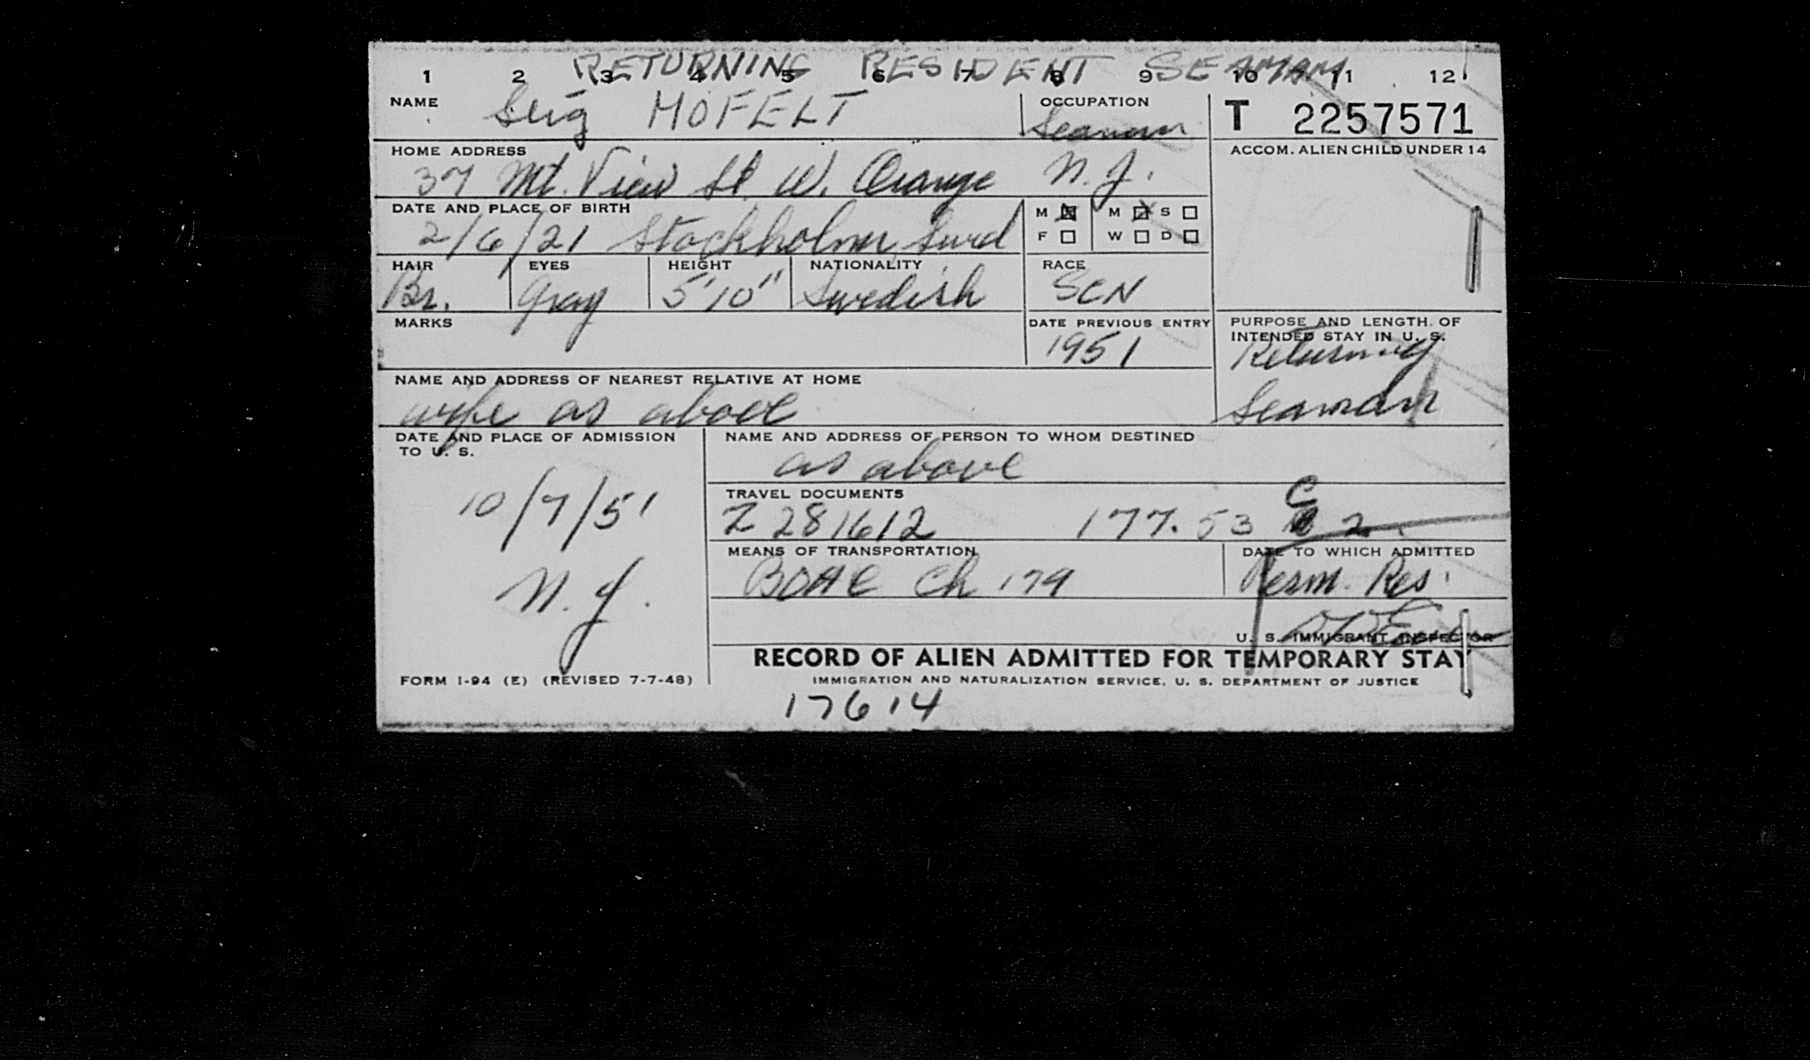 RETURNING RESIDENT SEAMAN
1 2 3 4 5 6 7 8 9 10 11 12
NAME
Stig HOFELT
OCCUPATION
Seaman
T 2257571
HOME ADDRESS
37 Mt. View St. W. Orange N.J.
ACCOM. ALIEN CHILD UNDER 14
DATE AND PLACE OF BIRTH
2/6/21 Stockholm, Swed
M F
M S W D
HAIR
Br.
EYES
Gray
HEIGHT
5'10"
NATIONALITY
Swedish
RACE
SCN
MARKS
DATE PREVIOUS ENTRY
1951
PURPOSE AND LENGTH OF
INTENDED STAY IN U. S.
Returning
Seaman
NAME AND ADDRESS OF NEAREST RELATIVE AT HOME
wife as above
DATE AND PLACE OF ADMISSION
TO U. S.
10/7/51
N.J.
NAME AND ADDRESS OF PERSON TO WHOM DESTINED
as above
TRAVEL DOCUMENTS
Z 281612 177.53 C 2
MEANS OF TRANSPORTATION
BOAC Ch 179
DATE TO WHICH ADMITTED
Perm. Res.
U. S. IMMIGRANT INSPECTOR
RECORD OF ALIEN ADMITTED FOR TEMPORARY STAY
FORM I-94 (E) (REVISED 7-7-48)
IMMIGRATION AND NATURALIZATION SERVICE, U. S. DEPARTMENT OF JUSTICE
17614